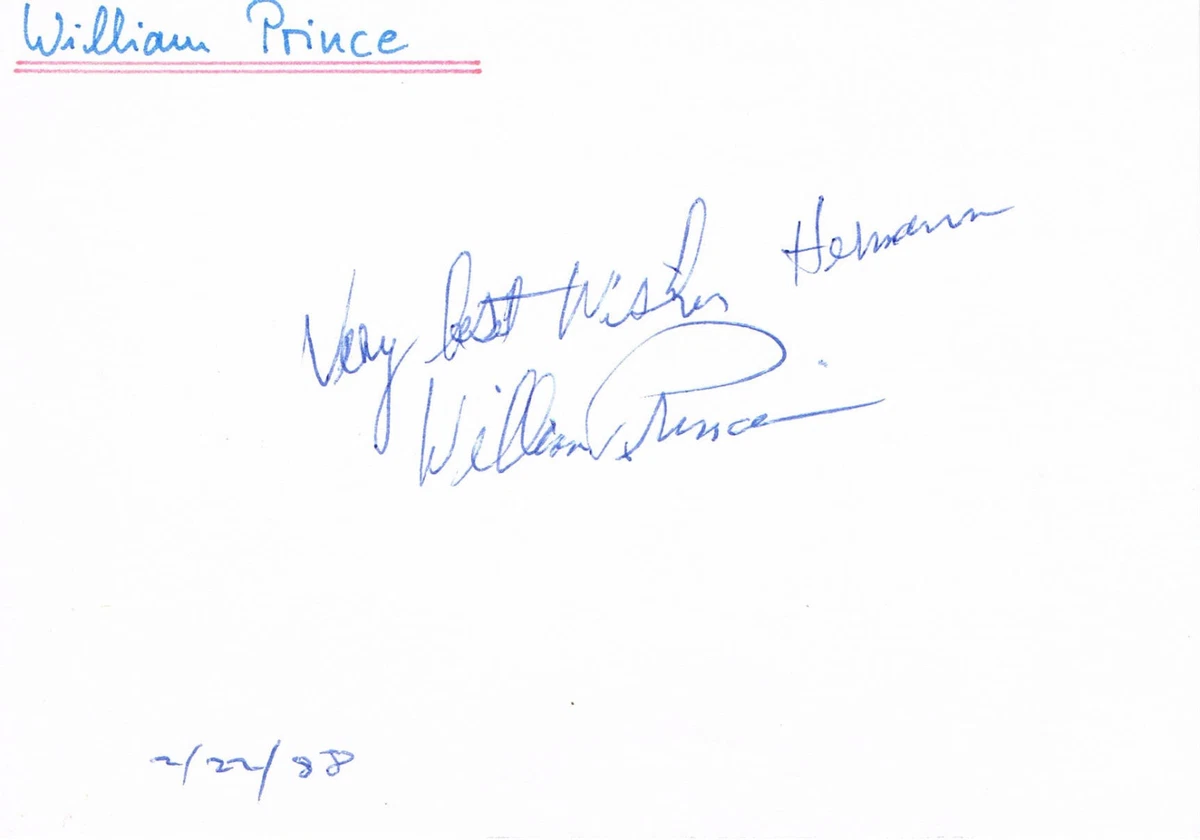 William Prince
Very best Wishes Hermann
William Prince
2/22/88